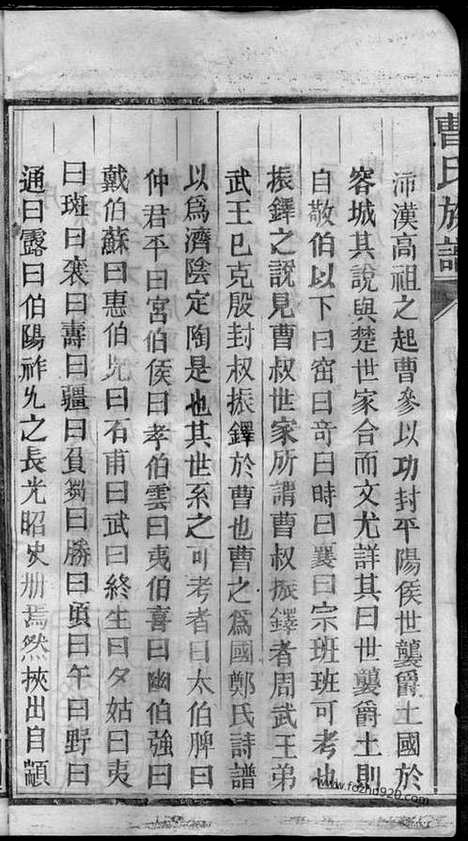 曹氏族譜
沛漢高祖之起曹參以功封平陽侯世襲爵土國於
容城其說與楚世家合而文尤詳其曰世襲爵土則
自敬伯以下曰窋曰奇曰時曰襄曰宗班班可考也
振鐸之說見曹叔世家所謂曹叔振鐸者周武王弟
武王已克殷封叔振鐸於曹也曹之爲國鄭氏詩譜
以爲濟陰定陶是也其世系之可考者曰太伯脾曰
仲君平曰宮伯侯曰孝伯雲曰夷伯喜曰幽伯強曰
戴伯蘇曰惠伯兕曰石甫曰武曰終生曰夕姑曰夷
曰班曰襄曰壽曰彊曰負芻曰勝曰頃曰午曰野曰
通曰露曰伯陽祚乆之長光昭史册焉然挾出自顓
www.fozhu920.com